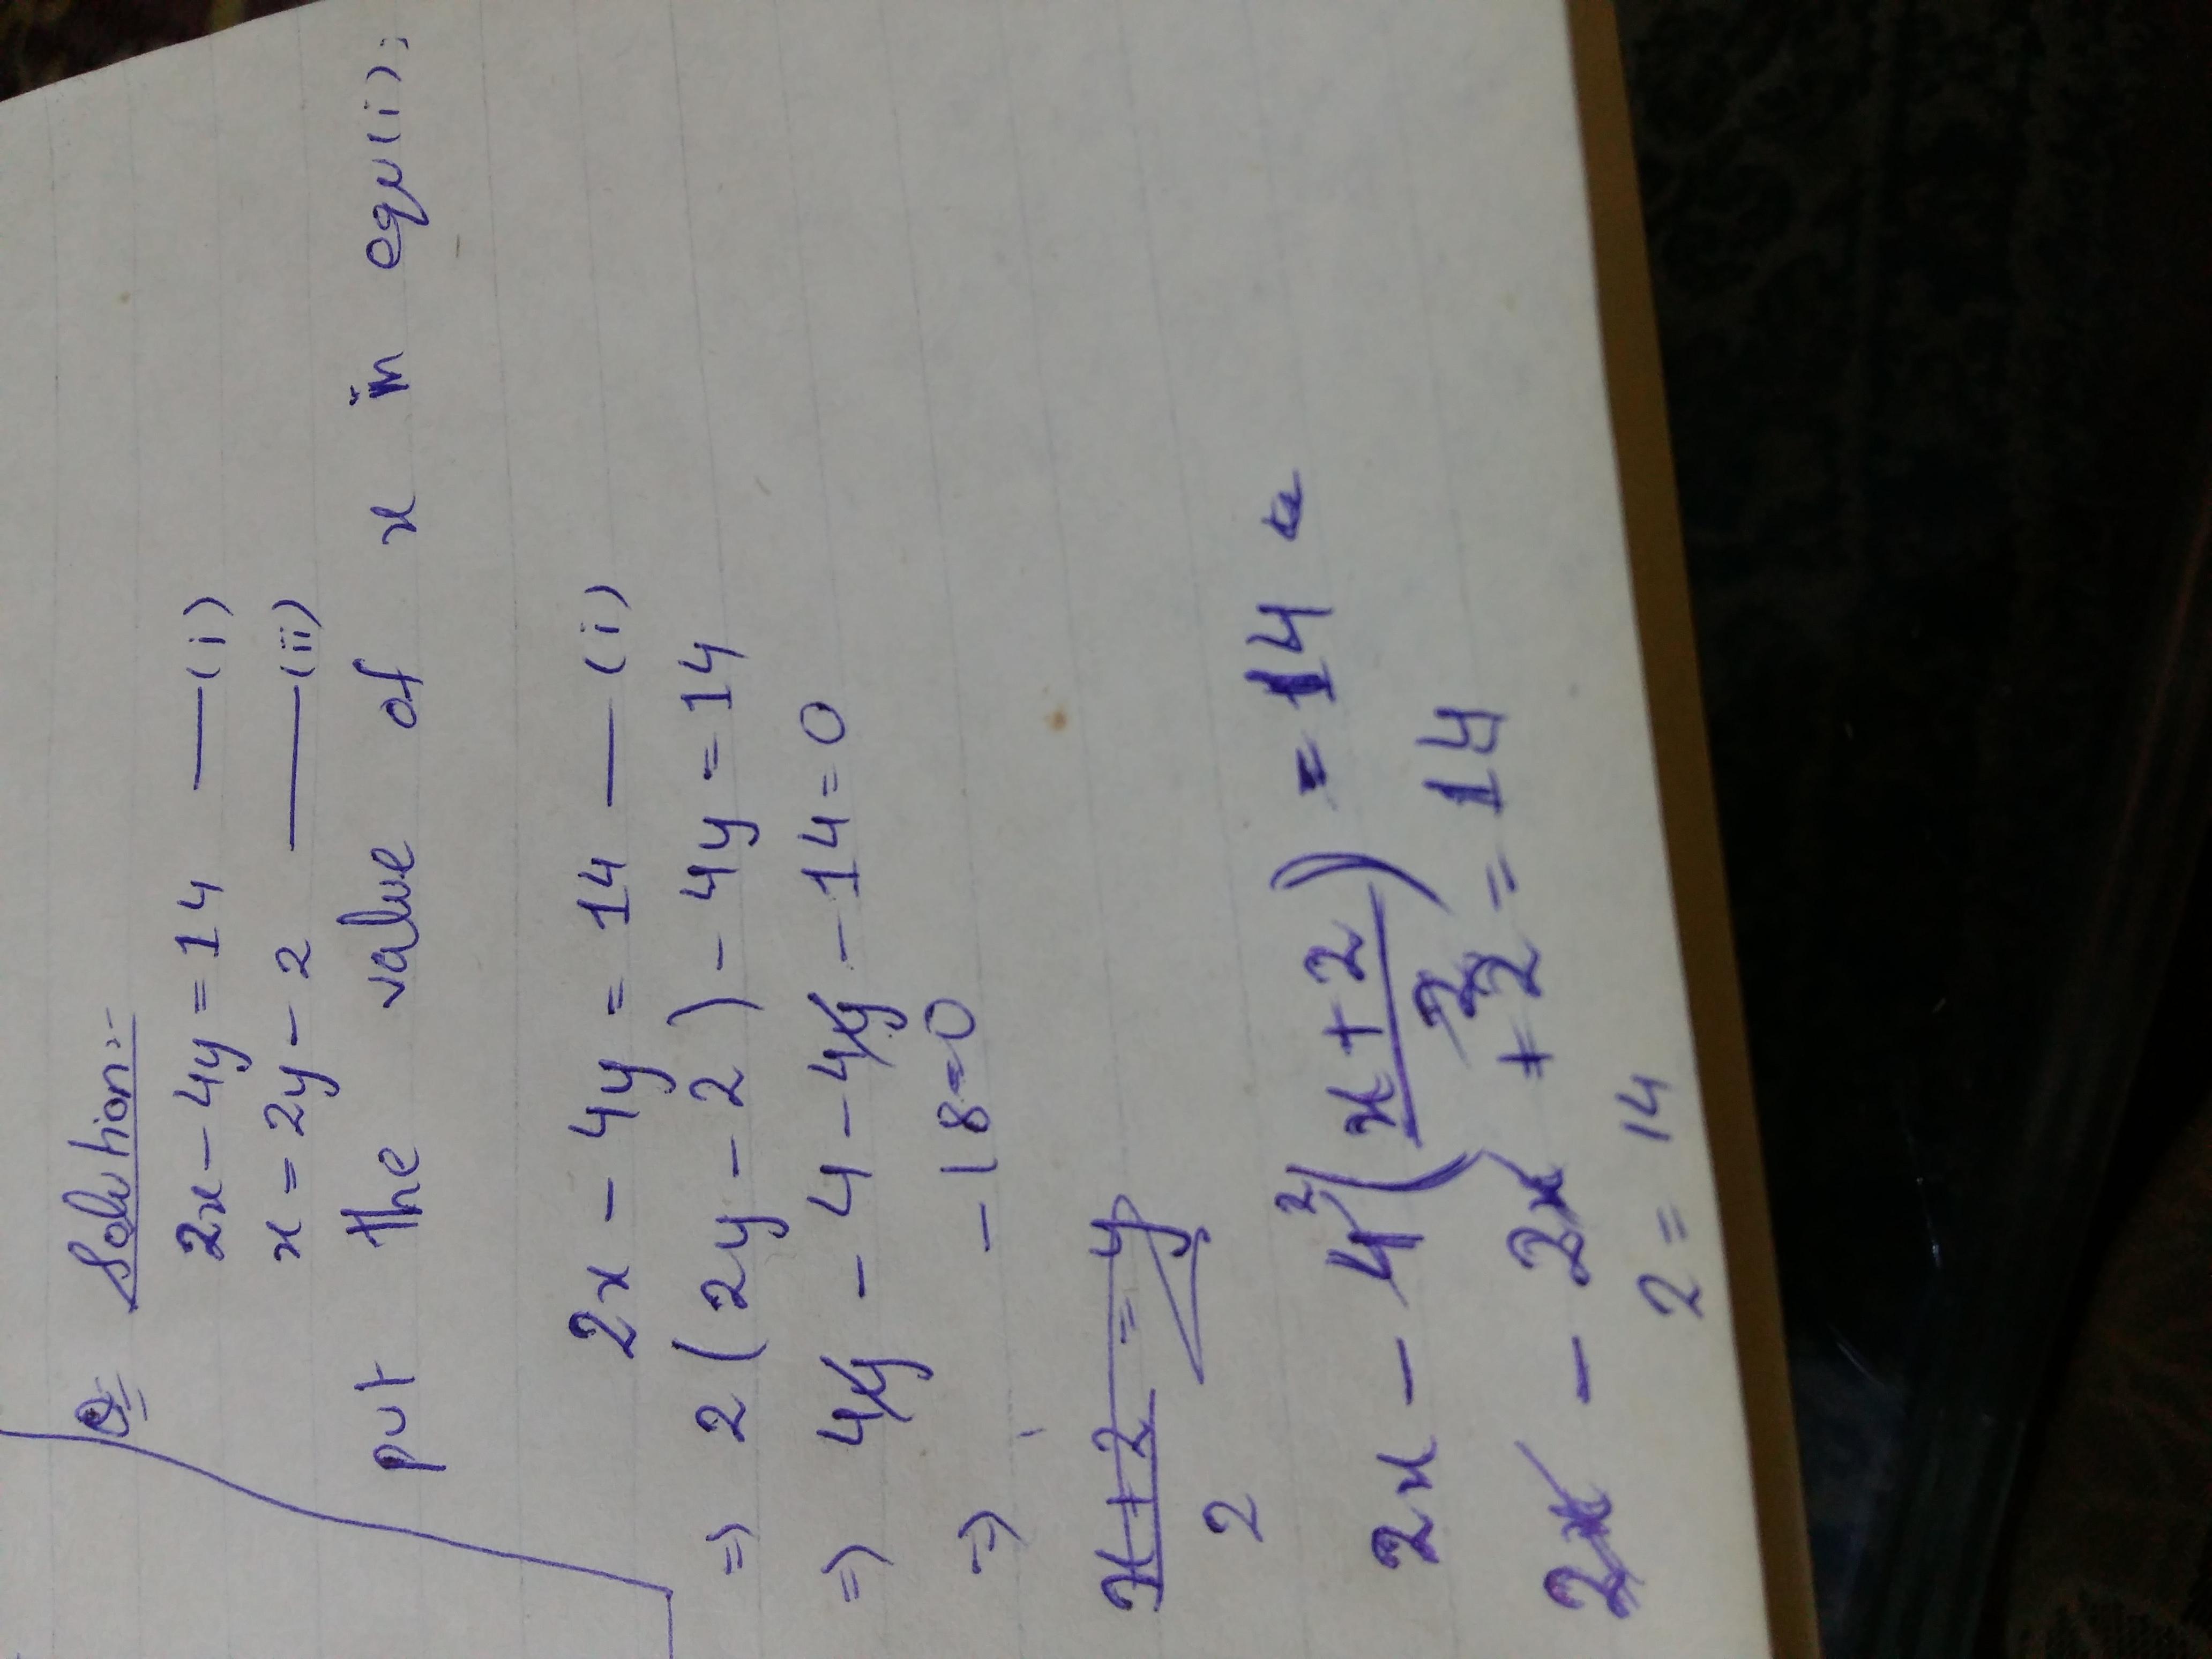 Q Solution:-
2x - 4y = 14 —(i)
x = 2y - 2 —(ii)
put the value of x in equ(i):
2x - 4y = 14 —(i)
=> 2(2y - 2) - 4y = 14
=> 4y - 4 - 4y - 14 = 0
=> -18=0
x+2 = y
2
2x - 4² (x+2) = 14
2
2x - 2x + 2 = 14
2 = 14